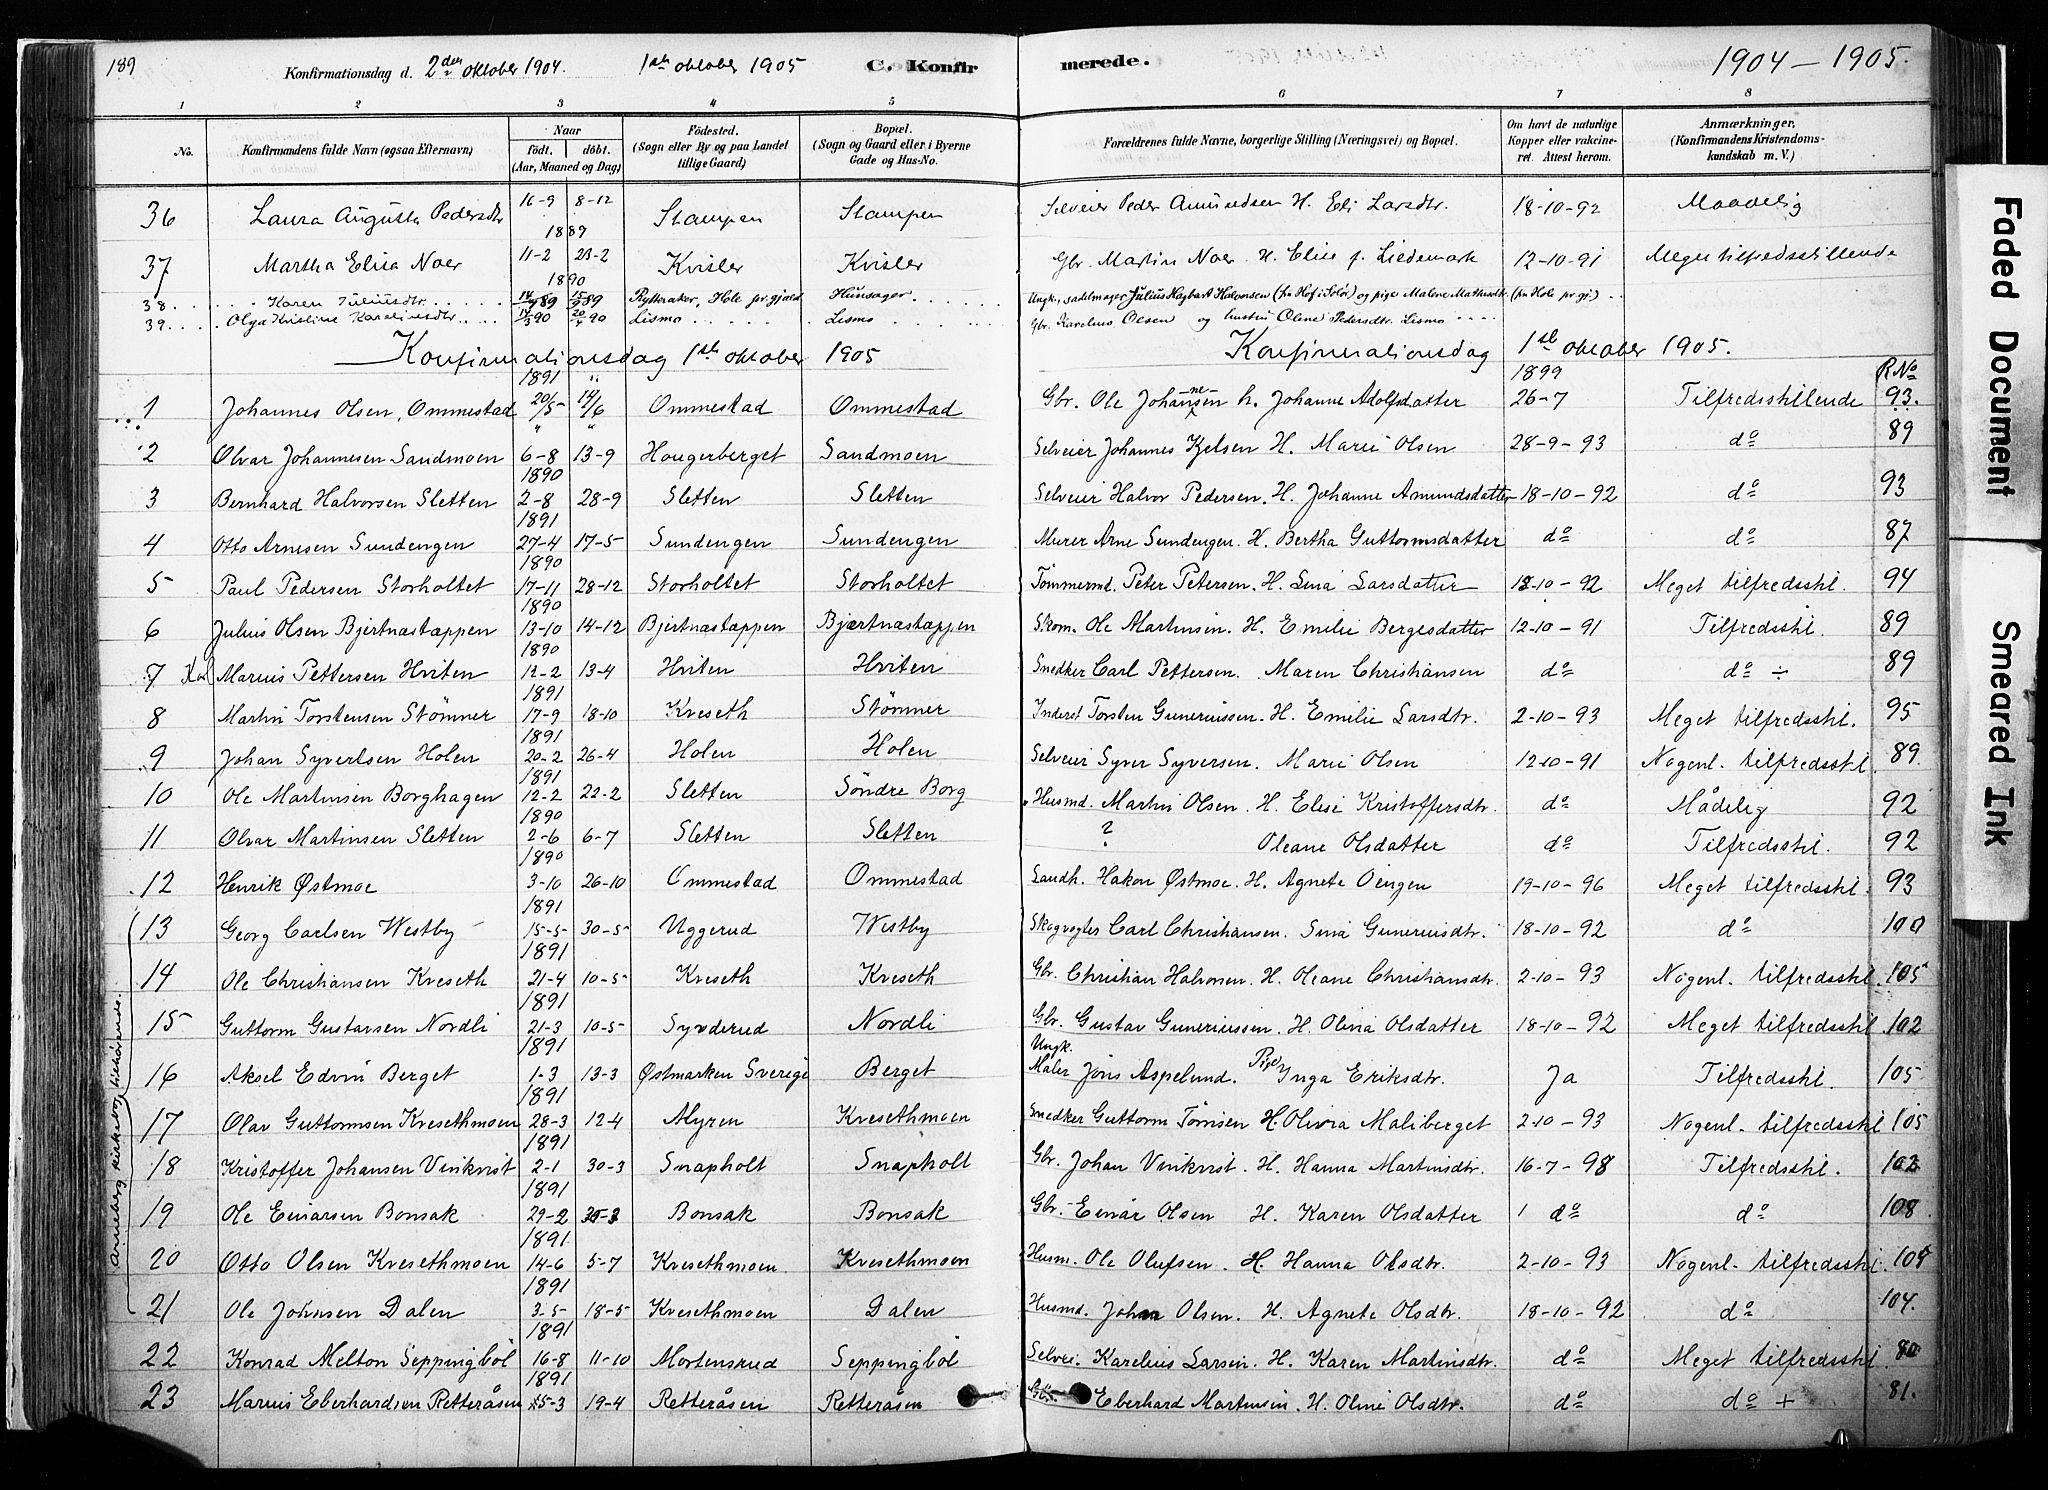 189 Konfirmationsdag d. 2den oktober 1904. 1ste oktober 1905 C. Konfirmerede. 1904 – 1905.
1 2 3 4 5 6 7 8
No. Konfirmandens fulde Navn (ogsaa Efternavn) Naar født, døbt. (Aar, Maaned og Dag) Födested. (Sogn eller By og paa Landet tillige Gaard) Bopæl. (Sogn og Gaard eller i Byerne Gade og Hus-No. Forældrenes fulde Navne, borgerlige Stilling (Næringsvei) og Bopæl. Om havt de naturlige Kopper eller vakcineret. Attest herom. Anmærkninger, (Konfirmandens Kristendomskundskab m. V.)
36 Laura Augusta Pedersdtr 16-9 8-12 1889 Stampen Stampen Selveier Peder Amundsen H. Eli Larsdtr. 18-10-92 Maadelig
37 Martha Elisa Noer 11-2 23-2 1890 Kvisler Kvisler Gbr. Martin Noer H. Elise f. Liedemark 12-10-91 Meget tilfredsstillende
38. Karen Juliusdtr. Rytteraker, Hole pr.gjæld Hunsager Ungk., sadelmager Julius Hagbart Halvorsen (fra Hof i Solør) og pige Malene Mathisdtr. (fra Hole pr.gj.)
39. Olga Kristine Karelinsdtr. 14/3 90 20/4 90 Lismo Lismo Gbr. Karelius Olsen og hustru Oline Pedersdtr. Lismo
Konfirmationsdag 1ste oktober 1905 Konfirmationsdag 1ste oktober 1905.
1891 " 1899 R No
1 Johannes Olsen, Ommestad 20/5 14/6 Ommestad Ommestad Gbr. Ole Johannesen h. Johanne Adolfsdatter 26-7 Tilfredsstillende 93.
2 Olvar Johannesen Sandmoen 6-8 13-9 Haugerberget Sandmoen Selveier Johannes Kjelsen H. Marie Olsen 28-9-93 do 89
1890
3 Bernhard Halvorsen Sletten 2-8 28-9 Sletten Sletten Selveier Halvor Pedersen. H. Johanne Amundsdatter 18-10-92 do 93
1891
4 Otto Arnesen Sundengen 27-4 17-5 Sundengen Sundengen Murer Arne Sundengen. H. Bertha Guttormsdatter do do 87
1890
5 Paul Pedersen Storholtet 17-11 28-12 Storholtet Storholtet Tømmermd. Peter Petersen. H. Lina Larsdatter 18-10-92 Meget tilfredsstil. 94
1890
6 Julius Olsen Bjertnæstappen 13-10 14-12 Bjertnæstappen Bjærtnæstappen Skom. Ole Martinsen. H. Emilie Bergesdatter 12-10-91 Tilfredsstil. 89
1890
7 Marius Pettersen Hviten 12-2 13-4 Hviten Hviten Snedker Carl Pettersen. Maren Christiansen do do ÷ 89
1891
8 Martin Torstensen Stømner 17-9 18-10 Kveseth Stømner Inderst Torsten Gunerinssen. H. Emilie Larsdtr. 2-10-93 Meget tilfredsstil. 95
1891
9 Johan Syvertsen Holen 20-2 26-4 Holen Holen Selveier Syver Syversen. Marie Olsen 12-10-91 Nogenl. tilfredsstil. 89.
1891
10 Ole Martinsen Borghagen 12-2 22-2 Sletten Søndre Borg Husmd. Martin Olsen. H. Elise Kristoffersdtr. do Mådelig 92
1890
11 Olvar Martinsen Sletten 2-6 6-7 Sletten Sletten ? Oleane Olsdatter do Tilfredsstil. 92
1890
12 Henrik Østmoe 3-10 26-10 Ommestad Ommestad Landh. Hakon Østmoe. H. Agnete Oengen 19-10-96 Meget tilfredsstil. 93
1891
13 Georg Carlsen Westby 15-5 30-5 Uggerud Westby Skogvogter Carl Christiansen. Sina Gunerinsdtr. 18-10-92 do 100
1891
14 Ole Christiansen Kveseth 21-4 10-5 Kveseth Kveseth Gbr. Christian Halvorsen. H. Oleane Christiansdtr. 2-10-93 Nogenl. tilfredsstil. 105
1891
15 Guttorm Gustavsen Nordli 21-3 10-5 Syvderud Nordli Gbr. Gustav Gunerinssen. H. Olina Olsdatter 18-10-92 Meget tilfredsstil. 102
1891
16 Aksel Edvin Berget 1-3 13-3 Østmarken Sverige Berget Ungk. Maler Jöns Aspelund. Pige Inga Eriksdtr. Ja Tilfredsstil. 105
1891
17 Olav Guttormsen Kvesethmoen 28-3 12-4 Myren Kvesethmoen Snedker Guttorm Tønsen H. Olivia Maliberget 2-10-93 Nogenl. tilfredsstil 105
1891
18 Kristoffer Johansen Vinkvist 2-1 30-3 Snapholt Snapholt Gbr. Johan Vinkvist. H. Hanna Martinsdtr. 16-7-98 Tilfredsstil. 102
1891
19 Ole Einarsen Bonsak 29-2 Bonsak Bonsak Gbr. Einar Olsen H. Karen Olsdatter do do 108
1891
20 Otto Olsen Kvesethmoen 14-6 5-7 Kvesethmoen Kvesethmoen Husm. Ole Olufsen. H. Hanna Olsdtr. 2-10-93 Nogenl. tilfredsstil.
1891
21 Ole Johnsen Dalen 3-5 18-5 Kvesethmoen Dalen Husmd. John Olsen. H. Agnete Olsdtr. 18-10-92 do 104.
1891
22 Konrad Melton Seppingbøl 16-8 11-10 Mortensrud Seppingbøl Selvei. Karelius Larsen. H. Karen Martinsdtr. do Meget tilfredsstil. 80
1891
23 Marius Eberhardsen Retteråsen 15-3 19-4 Retteråsen Retteråsen Eberhard Martinsen. H. Oline Olsdtr. do do + 81.
Arneberg kirkesogn tilhørende.
Faded Document
Smeared Ink